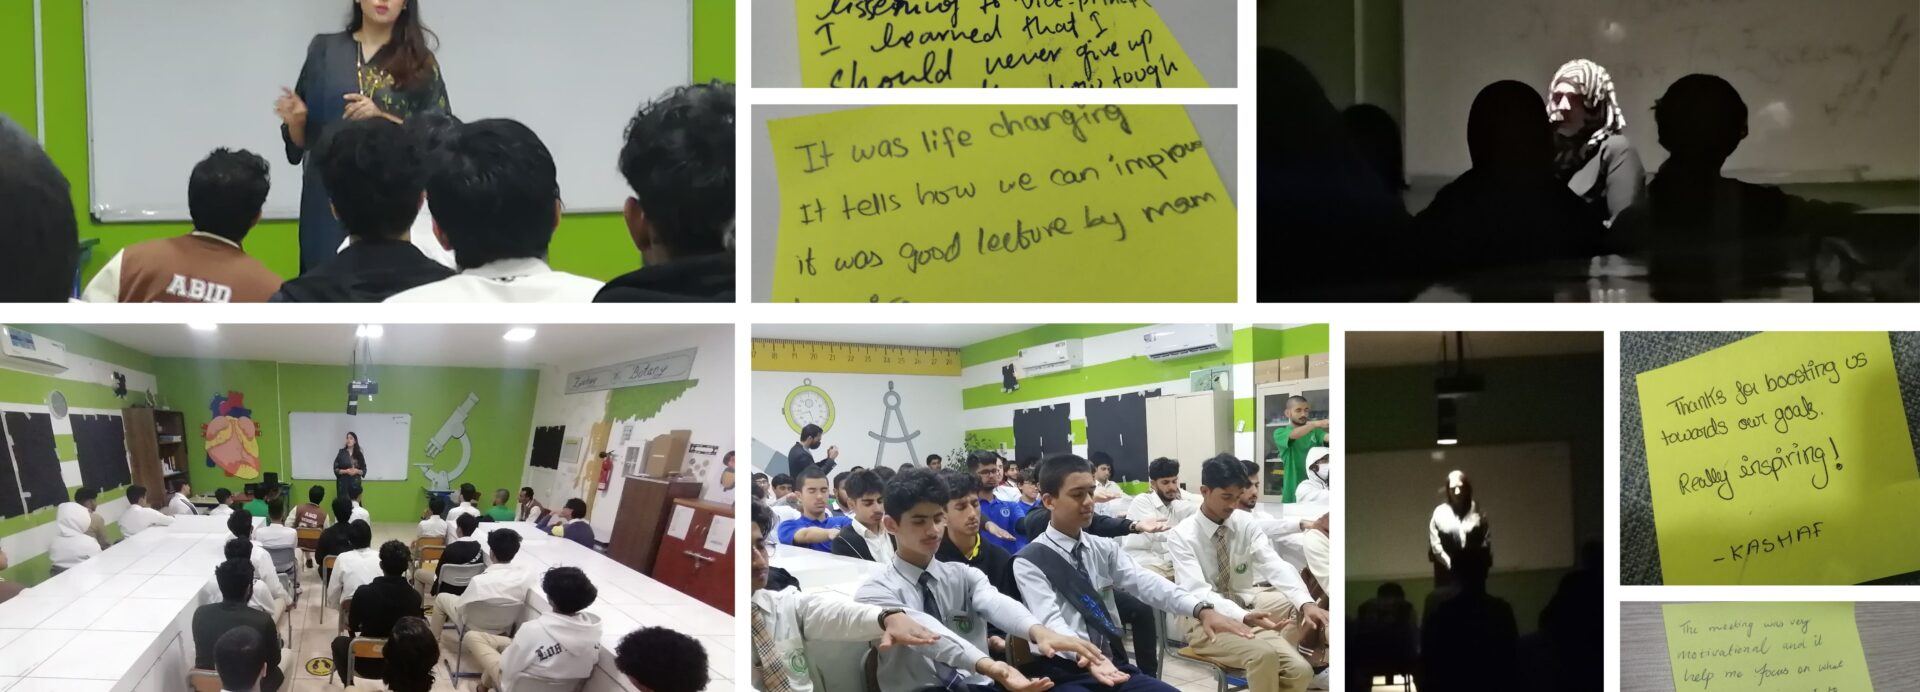 ABID
listening to vice-princ
I learned that I
should never give up
how tough
It was life changing
It tells how we can improve
it was good lecture by mam
Zoology
Botany
17 18 19 20 21 22 23 24 25 26 27 28
Los
Thanks for boosting us
towards our goals.
Really inspiring!
-KASHAF
The meeting was very
motivational and it
help me focus on what